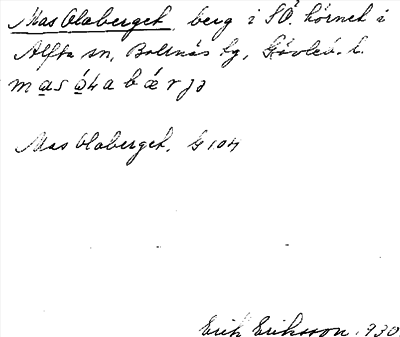 Mas Olaberget, berg i SÖ. hörnet i
Alfta sn, Bollnäs tg, Gävleb. l.
Mas Olaberget, G 104
Erik Eriksson 1930